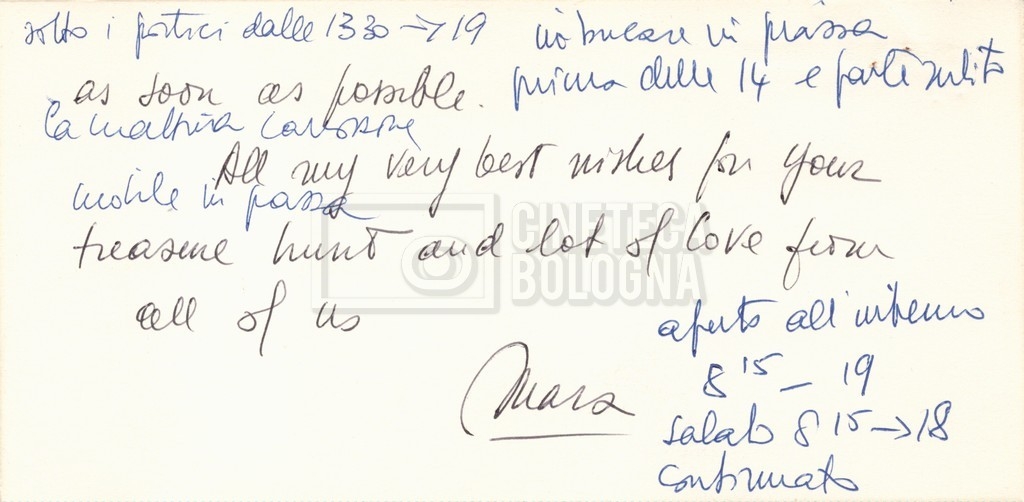 sotto i portici dalle 13 30 → 19
imbucare in piazza
as soon as possible.
prima delle 14 e parte subito
la mattina
All my very best wishes for your
mobile in piazza
treasure hunt and lot of love from
all of us
CINETECA
BOLOGNA
aperto all'interno
8 15 – 19
Mara
sabato 8 15 → 18
continuato